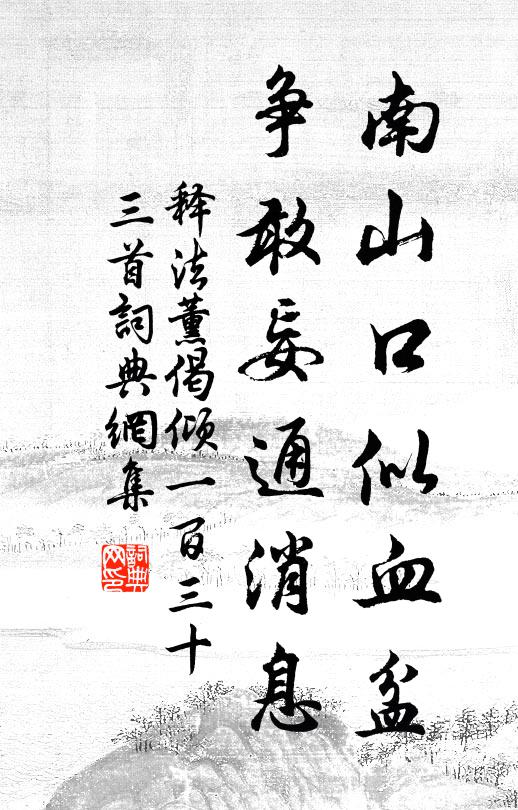 南山口似血盆
争敢妄通消息
释法薰偈倾一百三十
三首詞典網集
詞典网印